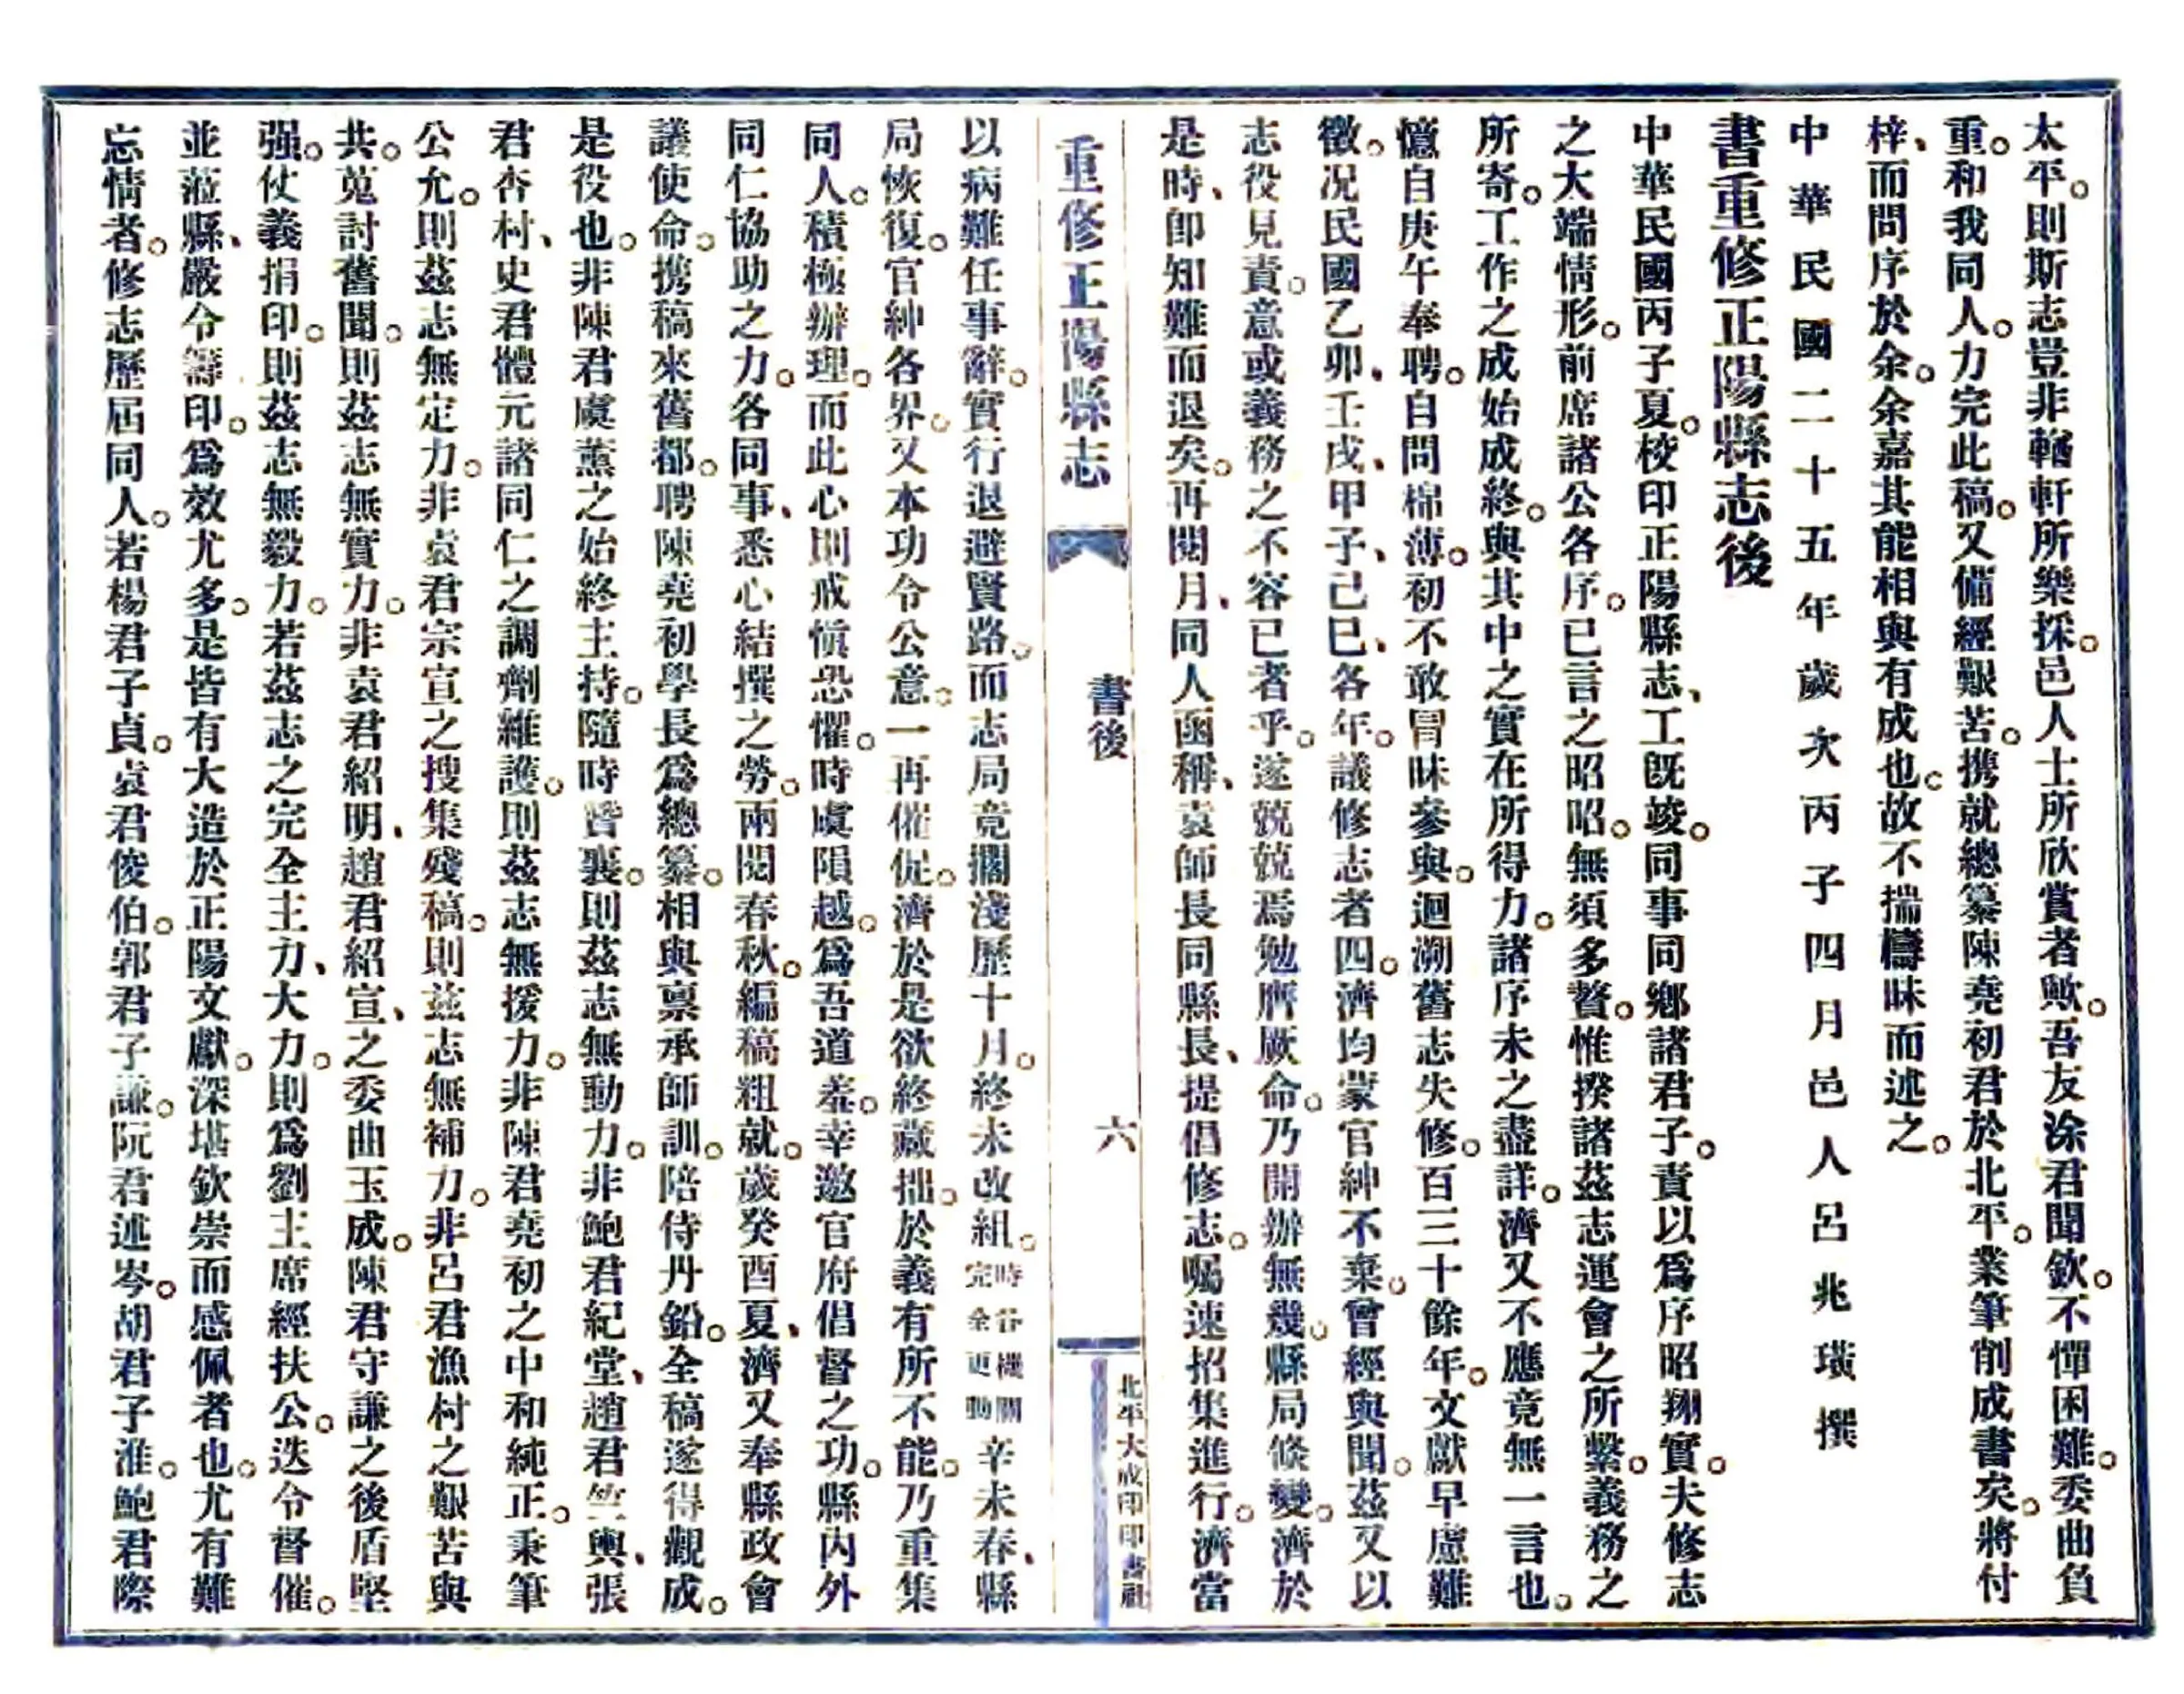 太平。則斯志豈非輶軒所樂採。邑人士所欣賞者歟。吾友涂君聞欽。不憚困難。委曲負
重。和我同人。力完此稿。又備經艱苦。携就總纂陳堯初君於北平。業筆削成書矣。將付
梓、而問序於余。余嘉其能相與有成也。故不揣檮昧而述之。
中華民國二十五年歲次丙子四月邑人呂兆璜撰
書重修正陽縣志後
中華民國丙子夏。校印正陽縣志、工既竣。同事同鄉諸君子。責以爲序昭翔實。夫修志
之大端情形。前席諸公各序。已言之昭昭。無須多贅。惟揆諸茲志運會之所繫。義務之
所寄。工作之成始成終。與其中之實在所得力。諸序未之盡詳。濟又不應竟無一言也。
憶自庚午奉聘。自問棉薄。初不敢冒昧參與。迴溯舊志失修。百三十餘年。文獻早慮難
徵。况民國乙卯、壬戌、甲子、己巳、各年。議修志者四。濟均蒙官紳不棄。曾經與聞。茲又以
志役見責。意或義務之不容已者乎。遂兢兢焉勉膺厥命。乃開辦無幾。縣局倏變。濟於
是時、卽知難而退矣。再閱月、同人函稱、袁師長同縣長、提倡修志。囑速招集進行。濟當
重修正陽縣志
書後
六
北平大成印印書社
以病難任事辭。實行退避賢路。而志局竟擱淺歷十月。終未改組。時各機關完全更動辛未春、縣
局恢復。官紳各界。又本功令公意。一再催促。濟於是欲終藏拙。於義有所不能。乃重集
同人。積極辦理。而此心則戒愼恐懼。時虞隕越。爲吾道羞。幸邀官府倡督之功。縣內外
同仁協助之力。各同事、悉心結撰之勞。兩閱春秋。編稿粗就。歲癸酉夏、濟又奉縣政會
議使命。携稿來舊都。聘陳堯初學長爲總纂。相與稟承師訓。陪侍丹鉛。全稿遂得觀成。
是役也。非陳君虞薰之始終主持。隨時贊襄。則茲志無動力。非鮑君紀堂、趙君竺輿、張
君杏村、史君體元諸同仁之調劑維護。則茲志無援力。非陳君堯初之中和純正。秉筆
公允。則茲志無定力。非袁君宗宣之搜集殘稿。則茲志無補力。非呂君漁村之艱苦與
共。蒐討舊聞。則茲志無實力。非袁君紹明、趙君紹宣、之委曲玉成。陳君守謙之後盾堅
强。仗義捐印。則茲志無毅力。若茲志之完全主力、大力。則爲劉主席經扶公。迭令督催。
並蒞縣、嚴令籌印。爲效尤多。是皆有大造於正陽文獻。深堪欽崇而感佩者也。尤有難
忘情者。修志歷屆同人。若楊君子貞。袁君俊伯。郭君子謙。阮君述岑。胡君子淮。鮑君際